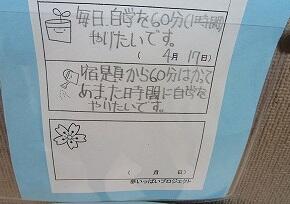 毎日、自学を60分(1時間)
やりたいです。
( 4月 17日)
宿題から60分はかって
あまった時間に自学を
やりたいです。
( 月 日)
夢いっぱいプロジェクト